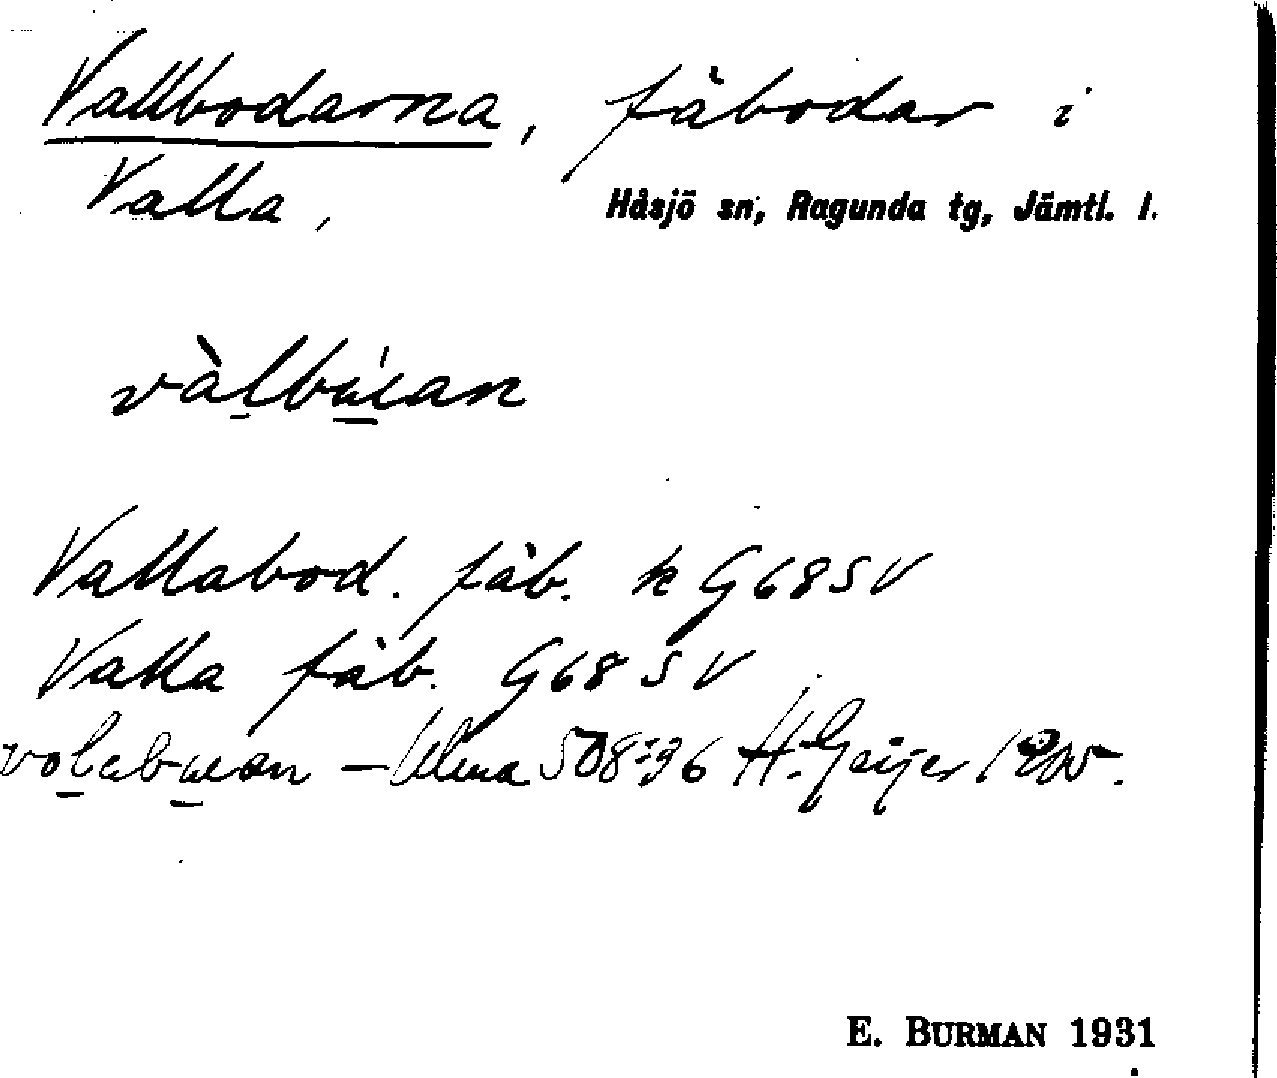 Vallbodarna, fäbodar i
Valla, Håsjö sn, Ragunda tg, Jämtl. l.
Vallabod. fäb. k G68SV
Valla fäb. G68 SV
– Ulma 508:36 H. Geijer 1905.
E. BURMAN 1931